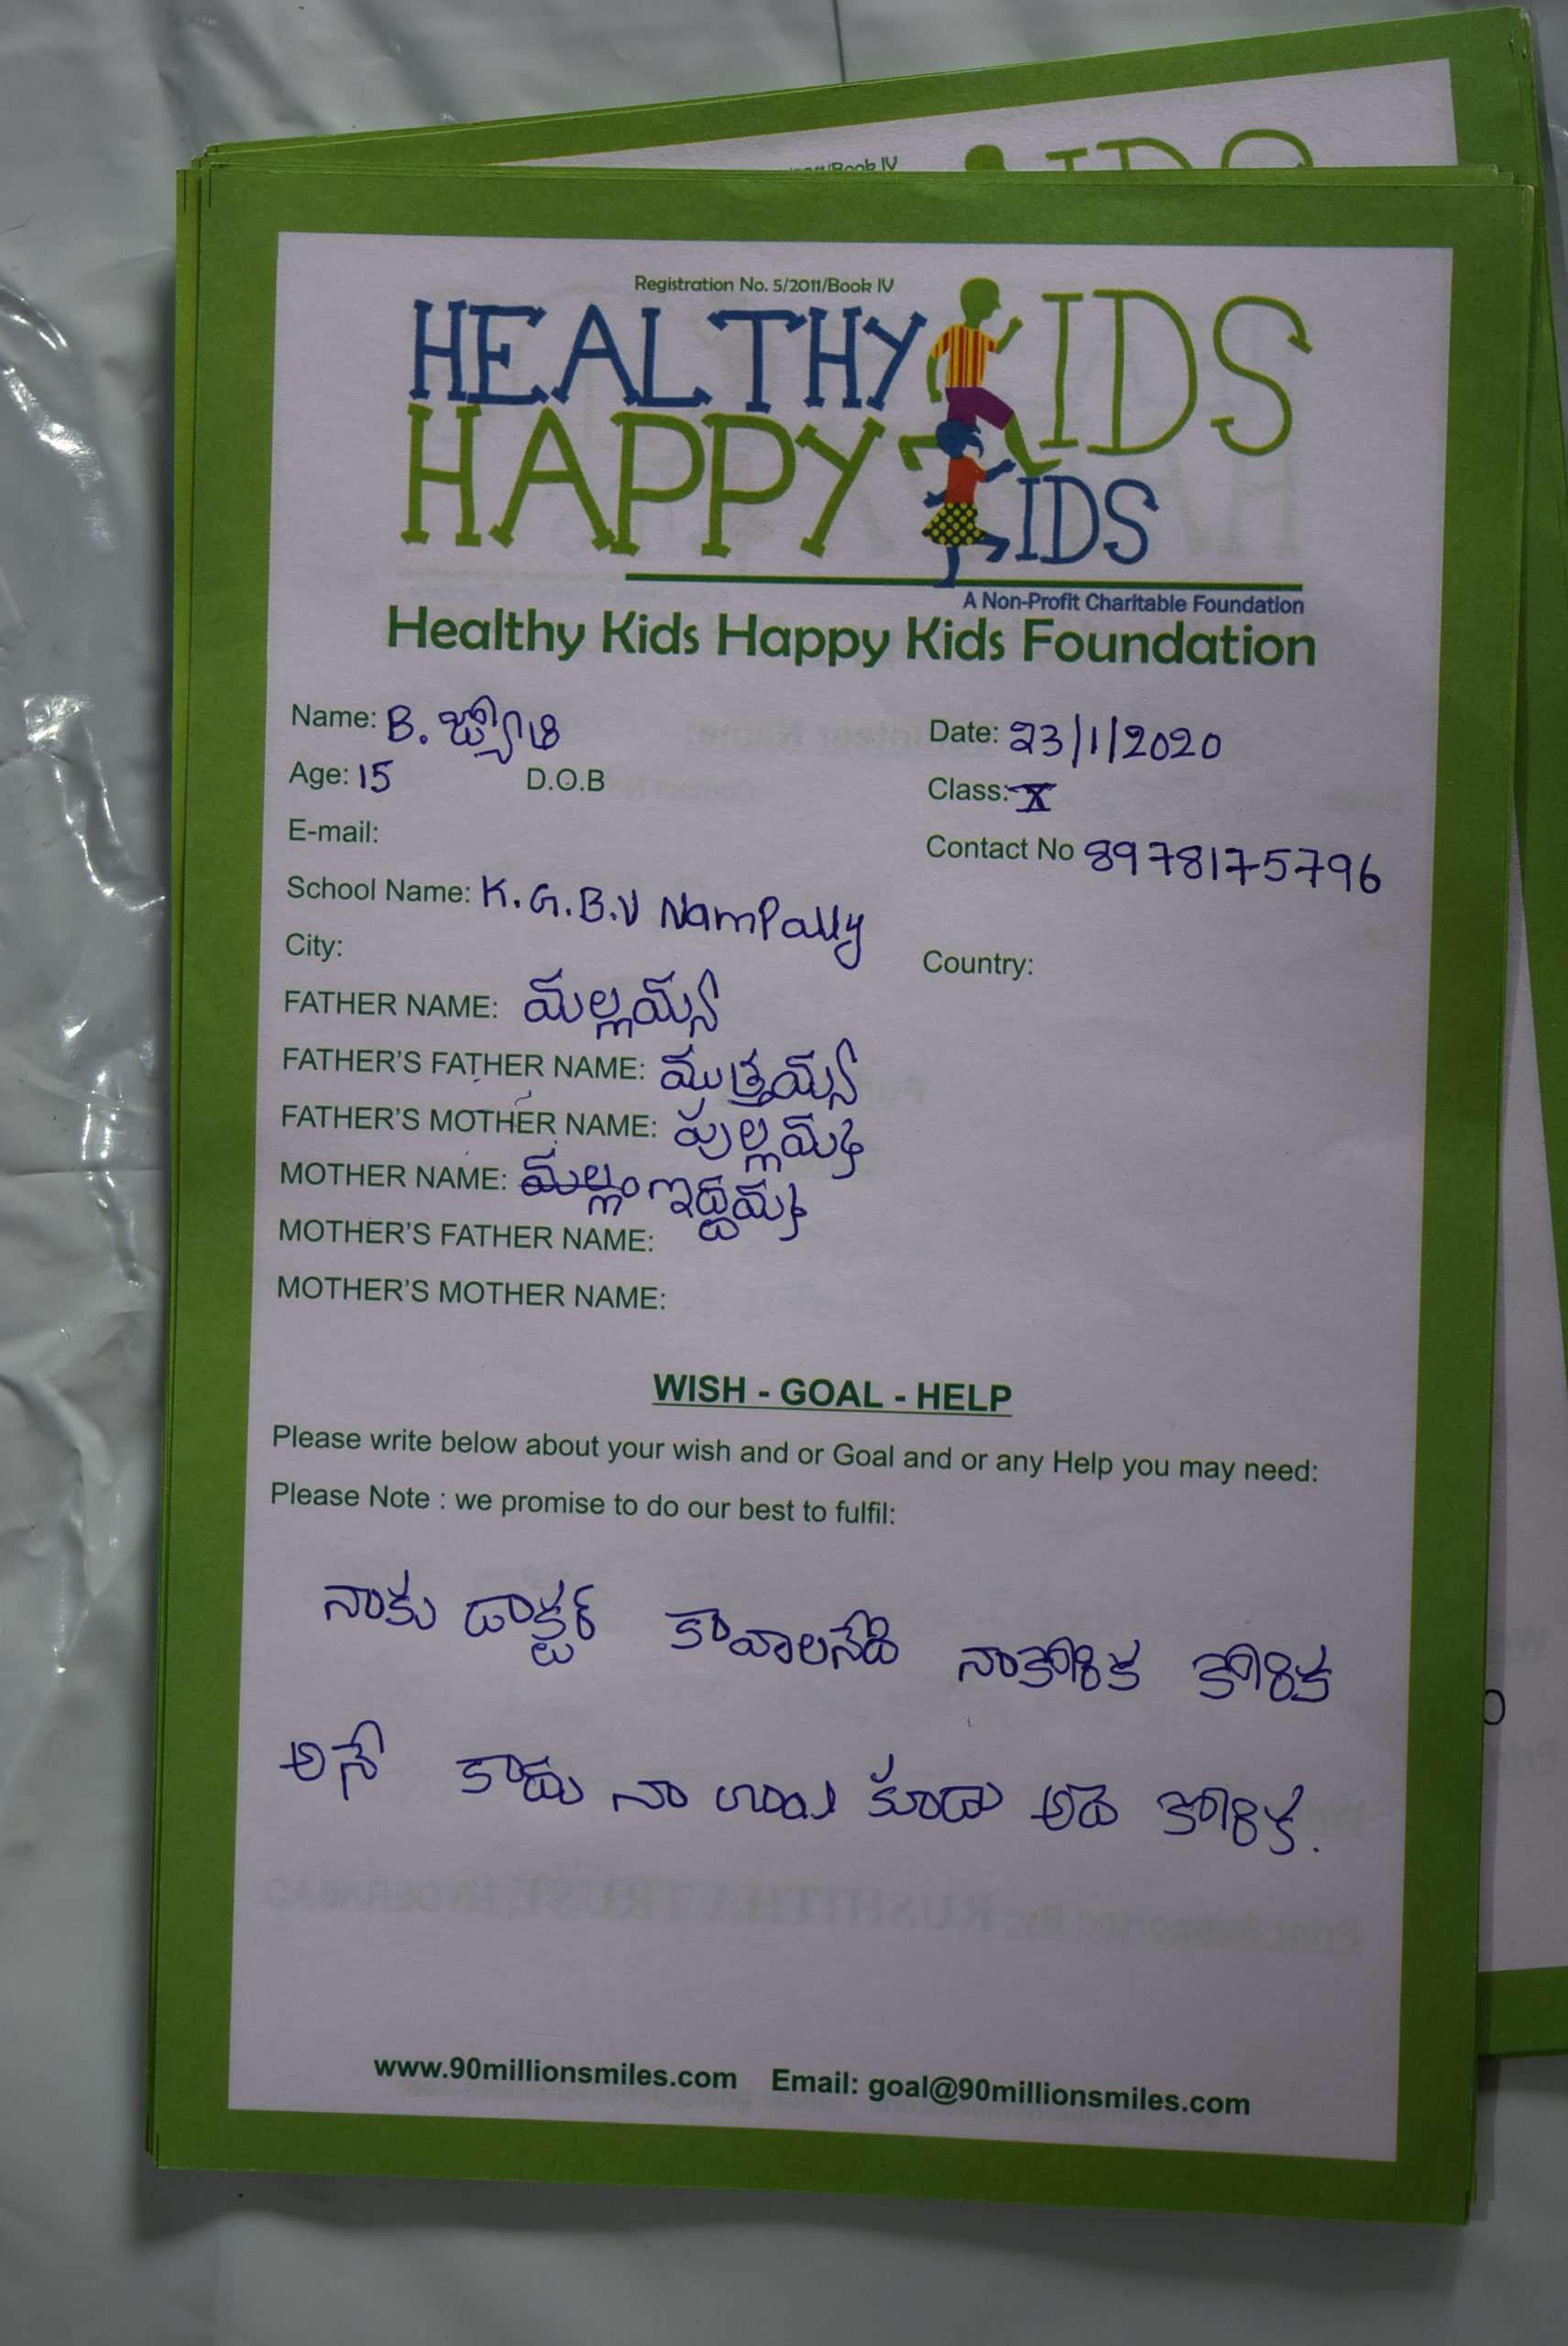 Registration No. 5/2011/Book IV
HEALTHY KIDS
HAPPY KIDS
A Non-Profit Charitable Foundation
Healthy Kids Happy Kids Foundation
Name: B. జ్యోతి Date: 23/1/2020
Age: 15 D.O.B Class: X
E-mail: Contact No 8978175796
School Name: K.G.B.V Nampally
City: Country:
FATHER NAME: మల్లయ్య
FATHER'S FATHER NAME: ముత్తయ్య
FATHER'S MOTHER NAME: పుల్లమ్మ
MOTHER NAME: ఇద్దమ్మ
MOTHER'S FATHER NAME:
MOTHER'S MOTHER NAME:
WISH - GOAL - HELP
Please write below about your wish and or Goal and or any Help you may need:
Please Note : we promise to do our best to fulfil:
నాకు డాక్టర్ కావాలనేది నాకోరిక కోరిక
అనే కాదు నా కూడా అదె కోరిక.
www.90millionsmiles.com Email: goal@90millionsmiles.com